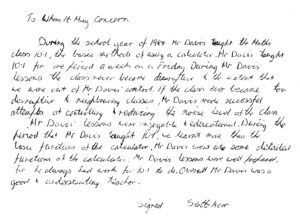 To Whom It May Concern
During the school year of 1984 Mr Davis taught the Maths
class 10.1, the basic methods of using a calculator. Mr Davis taught
10.1 for one period a week on a Friday. During Mr Davis'
lessons the class never became disruptive to the extent that
we were out of Mr Davis' control. If the class ever became too
disruptive to neighbouring classes, Mr Davis made successful
attempts at controlling & reducing the noise level of the class
Mr Davis' lessons were enjoyable & educational. During the
period that Mr Davis taught 10.1, we learnt more than the
basic functions of the calculator. Mr Davis went into some detailed
functions of the calculator. Mr Davis lessons were well prepared,
for he always had work for 10.1 to do. Overall Mr Davis was a
good & understanding teacher.
signed